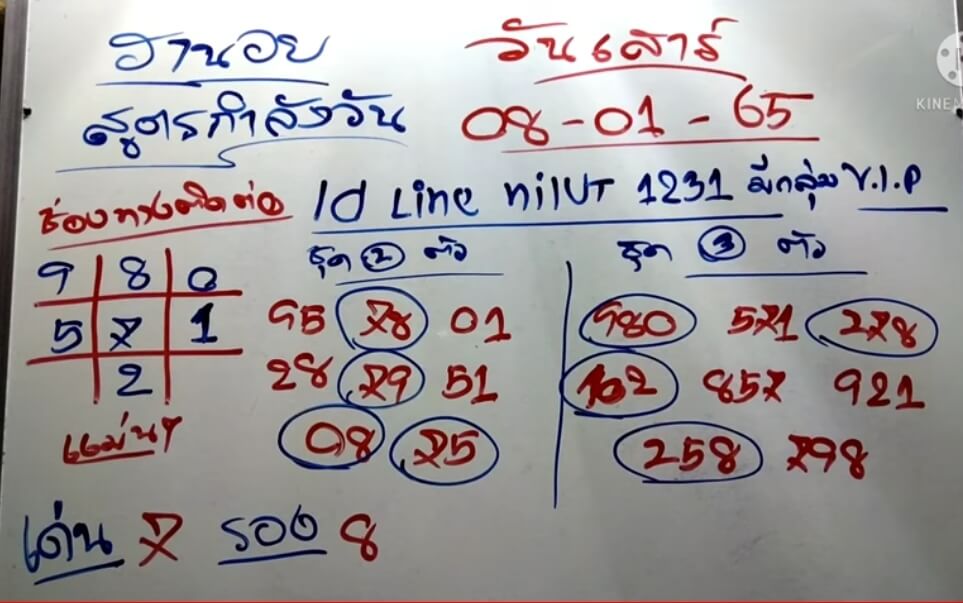 ฮานอย วันเสาร์
สูตรกำลังวัน 08-01-65
ช่องทางติดต่อ Id Line nilUT 1231 มีกลุ่ม V.I.P
ชุด 2 ตัว ชุด 3 ตัว
9 8 0
5 7 1
2
95 78 01 980 571 278
28 79 51 102 857 921
08 75 258 798
แม่นๆ
เด่น 7 รอง 8
KINEM